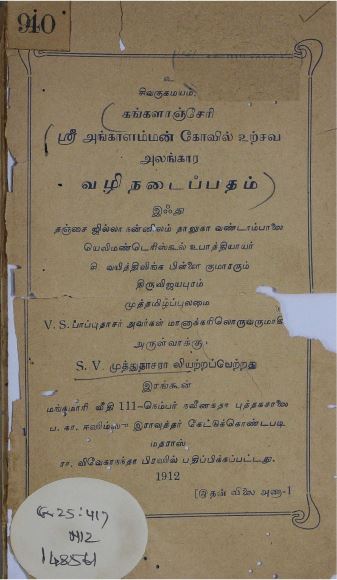 940
உ
சிவகுகமயம்.
கங்களாஞ்சேரி
ஸ்ரீ அங்காளம்மன் கோவில் உற்சவ
அலங்கார
வழிநடைப்பதம்
இஃது
தஞ்சை ஜில்லா நன்னிலம் தாலுகா வண்டாம்பாலை
யெலிமண்டெரிஸ்கூல் உபாத்தியாயர்
சி. வயித்திலிங்க பிள்ளை குமாரரும்
திருவிஜயபுரம்
முத்தமிழ்ப்புலமை
V. S. பாப்புதாசர் அவர்கள் மாணாக்கரிலொருவருமாகி
அருள்வாக்கு
S. V. முத்துதாசரா லியற்றப்பெற்றது
இரங்கூன்
வீதி 111-நெம்பர் நவீனகதா புத்தகசாலை
ப. கா. இராவுத்தர் கேட்டுக்கொண்டபடி
மதராஸ்
ரா. விவேகாநந்தா பிரஸில் பதிப்பிக்கப்பட்டது.
1912
[இதன் விலை அணா-1
25:417
M12
148561